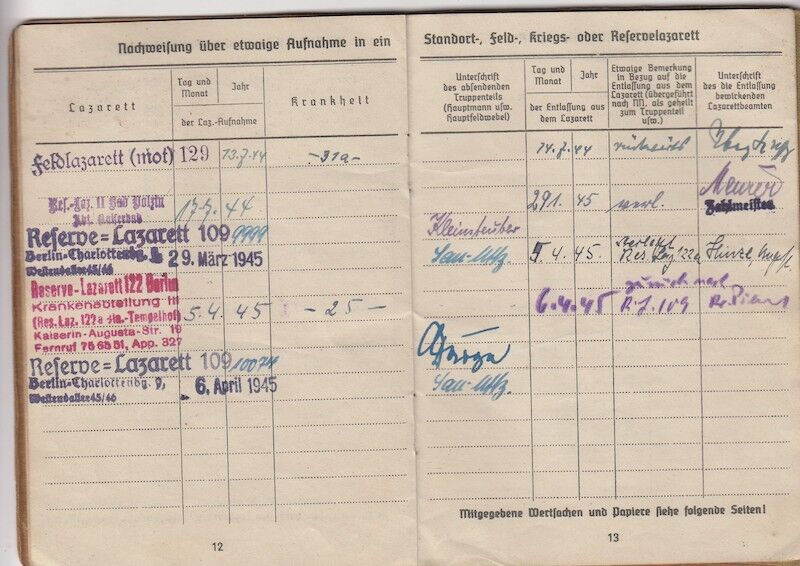 Nachweisung über etwaige Aufnahme in ein
Lazarett
Tag und
Monat
Jahr
der Laz.-Aufnahme
Krankheit
Feldlazarett (mot) 129
13.7.44
-31a-
Res.-Laz. II Bad Polzin
17.7. 44
Reserve=Lazarett 109 9999
Berlin-Charlottenbg. 9,
29. März 1945
Westendallee 45/46
Reserve-Lazarett 122 Berlin
Krankenabteilung III
(Res. Laz. 122a Bln.-Tempelhof)
5.4. 45
-25-
Kaiserin-Augusta-Str. 19
Fernruf 75 65 51, App. 327
Reserve=Lazarett 109 10074
Berlin-Charlottenbg. 9,
6. April 1945
Westendallee 45/46
12
Standort-, Feld-, Kriegs- oder Reservelazarett
Unterschrift
des absendenden
Truppenteils
(Hauptmann usw.
Hauptfeldwebel)
Tag und
Monat
Jahr
der Entlassung aus
dem Lazarett
Etwaige Bemerkung
in Bezug auf die
Entlassung aus dem
Lazarett (übergeführt
nach NN. als geheilt
zum Truppenteil
usw.)
Unterschrift
des die Entlassung
bewirkenden
Lazarettbeamten
14.7.44
rückwärts
29.1. 45
verl.
Meurer
Zahlmeister
Kleinsteuber
San.-Uffz.
5.4.45.
verlegt
Res. Laz. 122a
zurück verl.
6.4.45
R.L. 109
San.-Uffz.
Mitgegebene Wertsachen und Papiere siehe folgende Seiten!
13